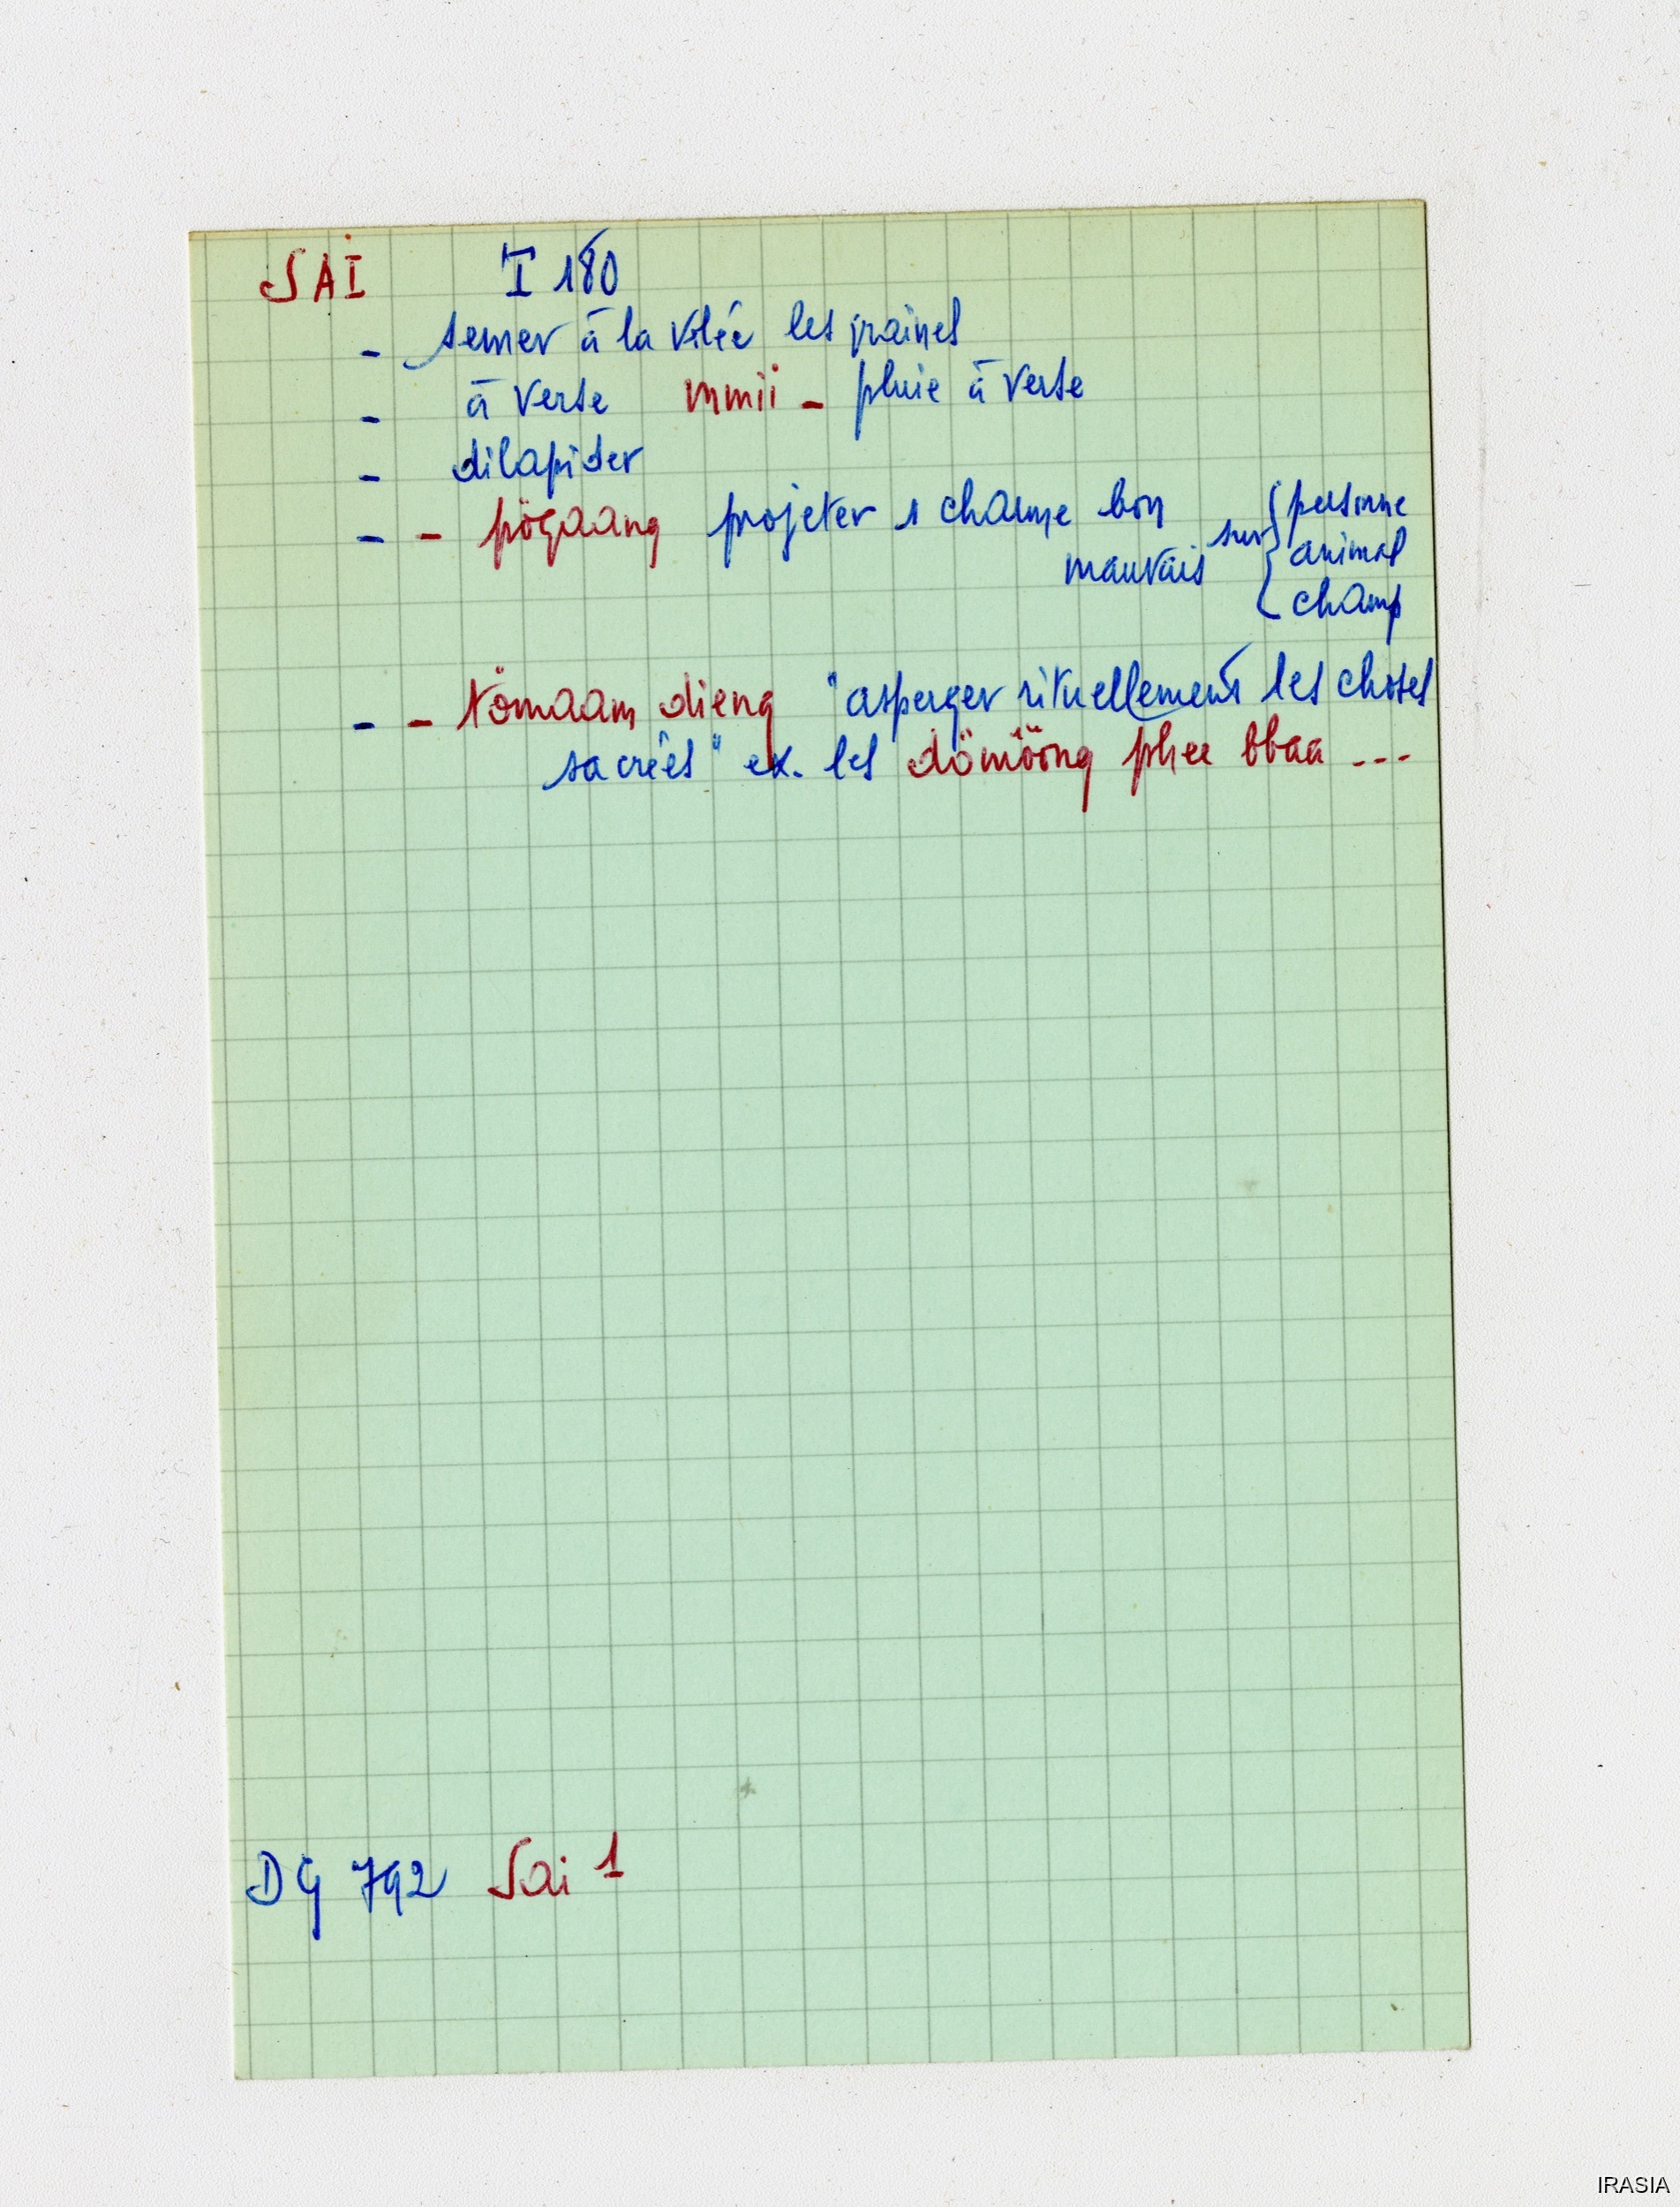 SAI I 180
- semer à la volée les graines
- à verse mmii - pluie à verse
- dilapider
- - pögaang projeter 1 charme bon
mauvais sur { personne
animal
champ
- - tömaam dieng "asperger rituellement les choses
sacrées" ex. les dömöông phee bbaa ---
DG 792 Sai 1
IRASIA